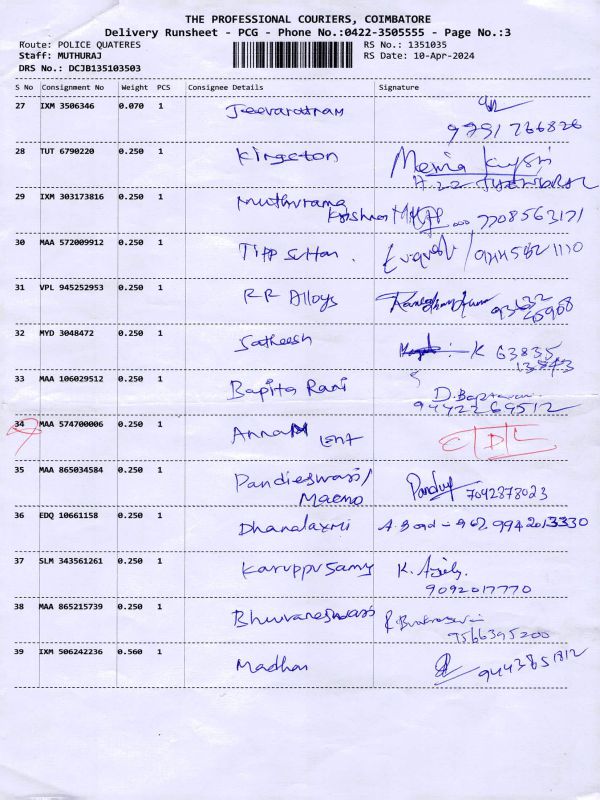 THE PROFESSIONAL COURIERS, COIMBATORE
Delivery Runsheet - PCG - Phone No.:0422-3505555 - Page No.:3
Route: POLICE QUATERES RS No.: 1351035
Staff: MUTHURAJ RS Date: 10-Apr-2024
DRS No.: DCJB135103503
S No Consignment No Weight PCS Consignee Details Signature
27 IXM 3506346 0.070 1 Jeevarathnam
9751 766826
28 TUT 6790220 0.250 1 Kingston
29 IXM 303173816 0.250 1 Muthurama
Krishnan 7708563171
30 MAA 572009912 0.250 1 Tipp Sulthan.
31 VPL 945252953 0.250 1 RR Alloys
32 MYD 3048472 0.250 1 Satheesh K 63835
13543
33 MAA 106029512 0.250 1 Bapita Rani
9442269512
34 MAA 574700006 0.250 1 Annam
35 MAA 865034584 0.250 1 Pandieswari/ 7042878023
36 EDQ 10661158 0.250 1 Dhanalaxmi 9942013330
37 SLM 343561261 0.250 1 Karuppusamy K.
9092017770
38 MAA 865215739 0.250 1 Bhuvaneshwari
9566395200
39 IXM 506242236 0.560 1 Madhan 9443851812